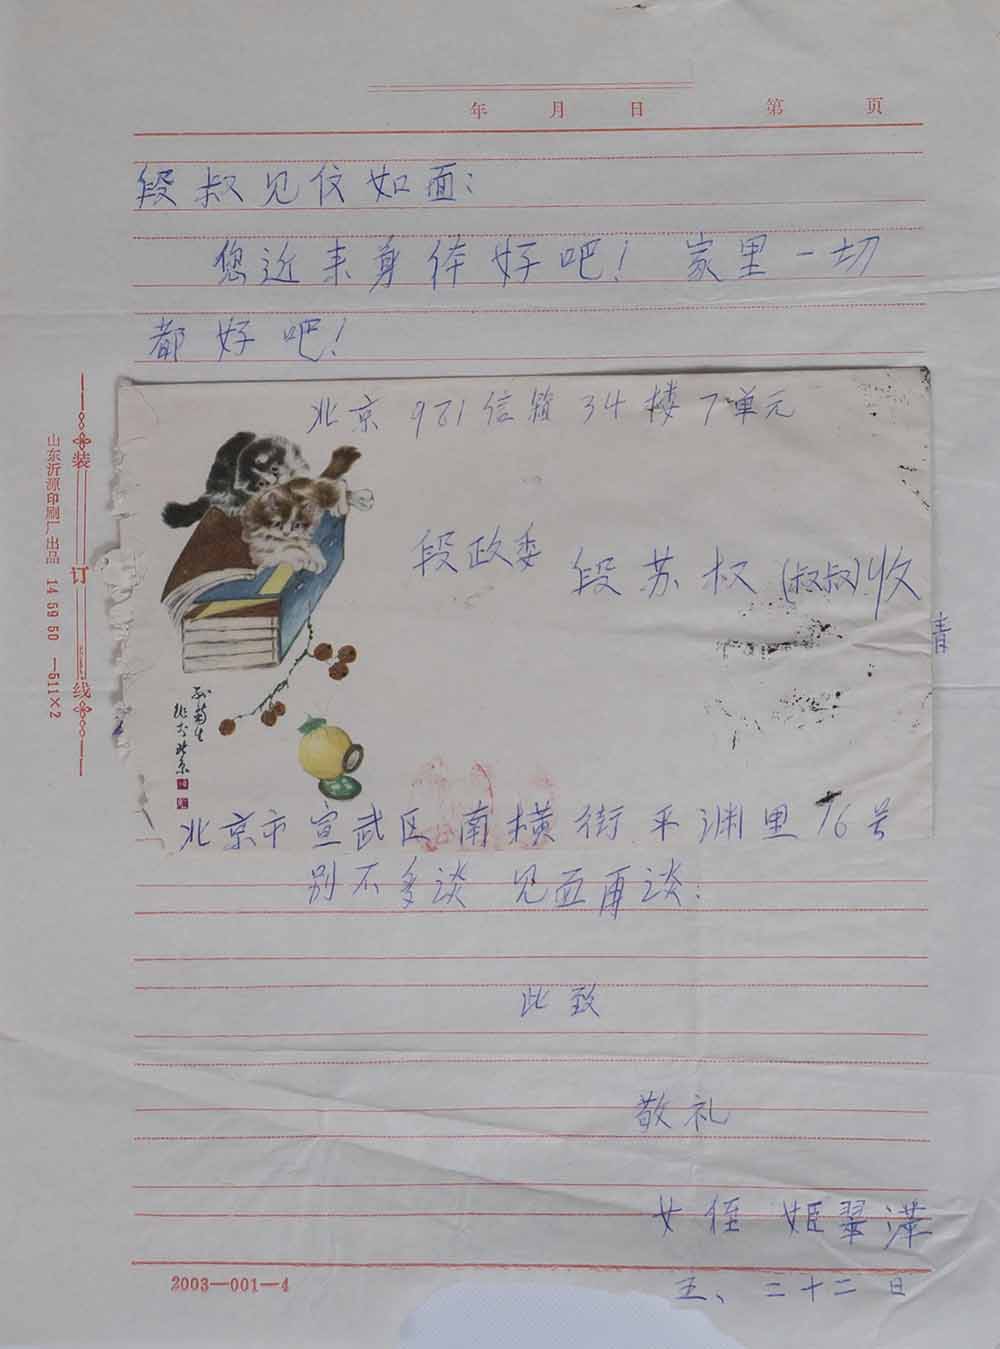 年 月 日 第 页
段叔见仗如面：
您近来身体好吧！家里一切
都好吧！
北京921信箱34楼7单元
段政委 段苏权(叔叔)收
青
孙菊生
北京市宣武区南横街平渊里76号
别不多谈 见面再谈.
此致
敬礼
女侄 姬翠
五、二十二日
2003—001—4
装订线
山东沂源印刷厂出品 14 59 50 —511×2